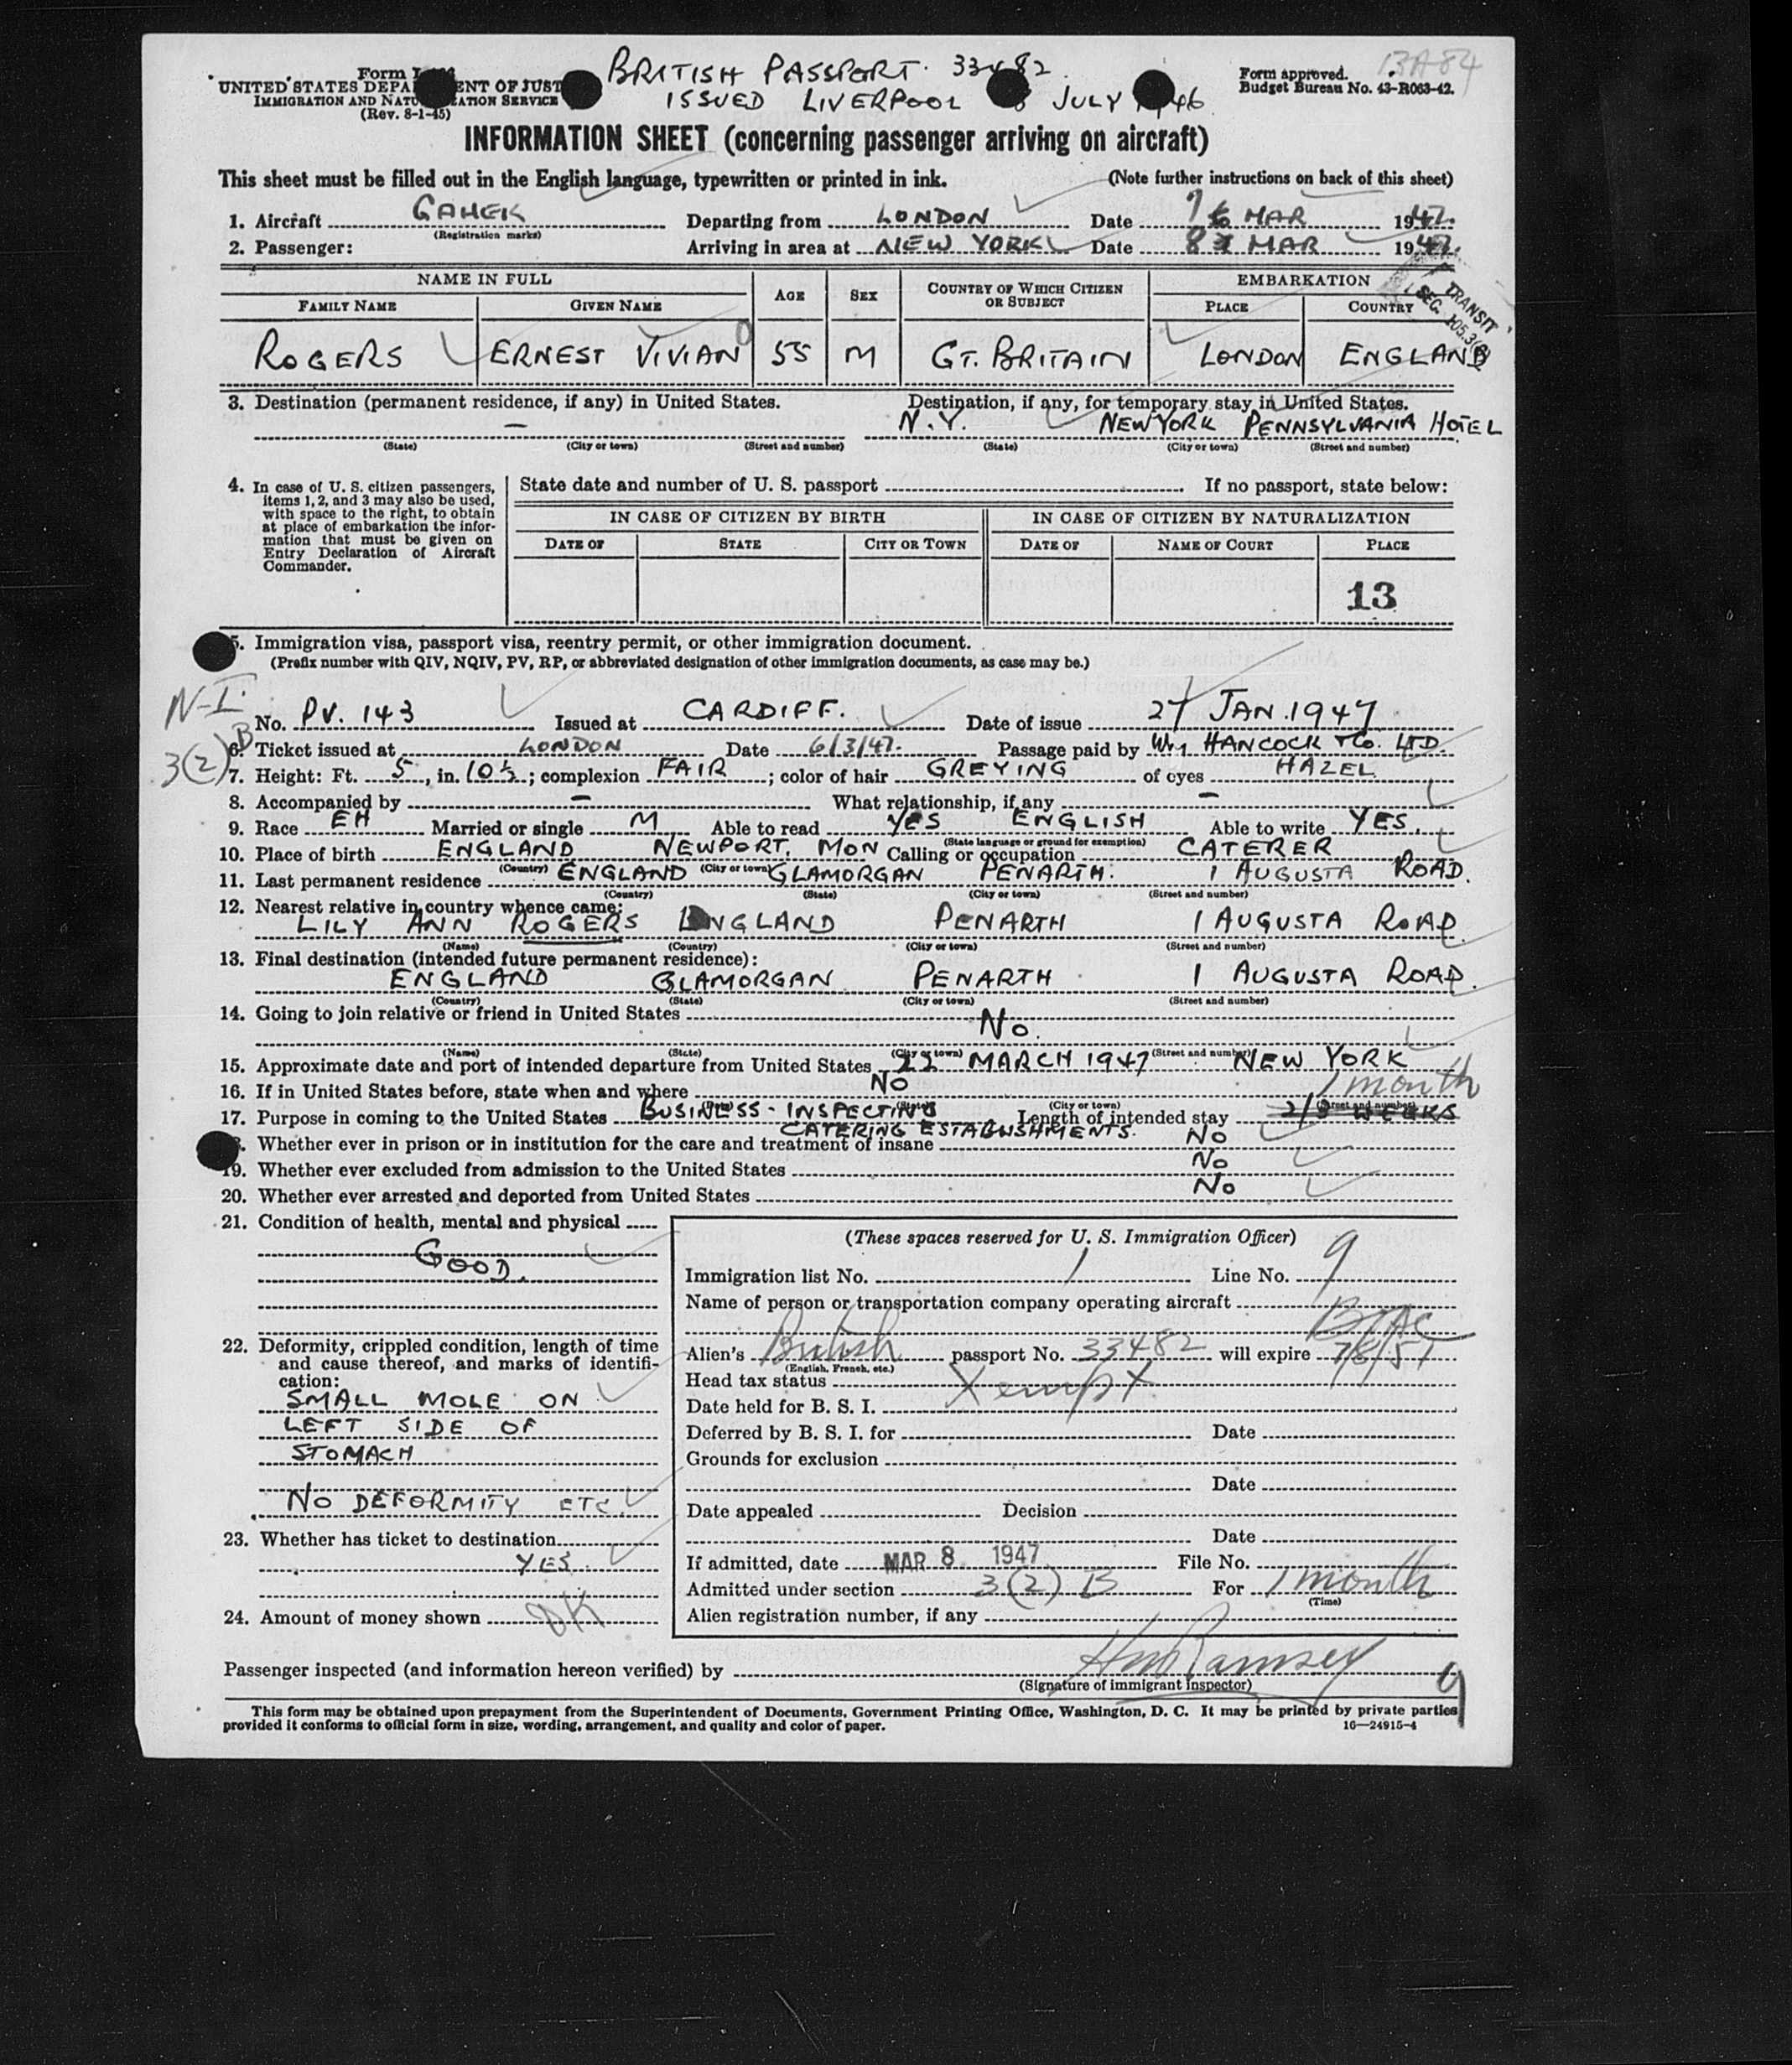 13A84
Form
UNITED STATES DEPA ENT OF JUST
IMMIGRATION AND NATU ATION SERVICE
(Rev. 8-1-45)
BRITISH PASSPORT. 33482
ISSUED LIVERPOOL JULY 46
Form approved.
Budget Bureau No. 43-R063-42.
INFORMATION SHEET (concerning passenger arriving on aircraft)
This sheet must be filled out in the English language, typewritten or printed in ink. (Note further instructions on back of this sheet)
1. Aircraft GAHEK Departing from LONDON Date 7 MAR 1947.
(Registration marks)
2. Passenger: Arriving in area at NEW YORK Date 8 MAR 1947.
TRANSIT
SEC. 105.3
NAME IN FULL AGE SEX COUNTRY OF WHICH CITIZEN OR SUBJECT EMBARKATION
FAMILY NAME GIVEN NAME PLACE COUNTRY
ROGERS ERNEST VIVIAN 55 M GT. BRITAIN LONDON ENGLAND
3. Destination (permanent residence, if any) in United States. Destination, if any, for temporary stay in United States.
— N.Y. NEW YORK PENNSYLVANIA HOTEL
(State) (City or town) (Street and number) (State) (City or town) (Street and number)
4. In case of U. S. citizen passengers,
items 1, 2, and 3 may also be used,
with space to the right, to obtain
at place of embarkation the infor-
mation that must be given on
Entry Declaration of Aircraft
Commander.
State date and number of U. S. passport If no passport, state below:
IN CASE OF CITIZEN BY BIRTH IN CASE OF CITIZEN BY NATURALIZATION
DATE OF STATE CITY OR TOWN DATE OF NAME OF COURT PLACE
13
5. Immigration visa, passport visa, reentry permit, or other immigration document.
(Prefix number with QIV, NQIV, PV, RP, or abbreviated designation of other immigration documents, as case may be.)
N-I
3(2)B
No. PV. 143 Issued at CARDIFF. Date of issue 27 JAN. 1947
6. Ticket issued at LONDON Date 6/3/47. Passage paid by Wm HANCOCK & Co. LTD.
7. Height: Ft. 5, in. 10½; complexion FAIR; color of hair GREYING of eyes HAZEL
8. Accompanied by — What relationship, if any —
9. Race EH Married or single M Able to read YES ENGLISH Able to write YES.
(State language or ground for exemption)
10. Place of birth ENGLAND NEWPORT. MON Calling or occupation CATERER
(Country) (City or town)
11. Last permanent residence ENGLAND GLAMORGAN PENARTH. 1 AUGUSTA ROAD.
(Country) (State) (City or town) (Street and number)
12. Nearest relative in country whence came:
LILY ANN ROGERS ENGLAND PENARTH 1 AUGUSTA ROAD.
(Name) (Country) (City or town) (Street and number)
13. Final destination (intended future permanent residence):
ENGLAND GLAMORGAN PENARTH 1 AUGUSTA ROAD.
(Country) (State) (City or town) (Street and number)
14. Going to join relative or friend in United States
No.
(Name) (State) (City or town) (Street and number)
15. Approximate date and port of intended departure from United States 22 MARCH 1947 NEW YORK
16. If in United States before, state when and where NO
(State) (City or town) (Street and number)
1 month
17. Purpose in coming to the United States BUSINESS - INSPECTING Length of intended stay 2/3 WEEKS
CATERING ESTABLISHMENTS.
. Whether ever in prison or in institution for the care and treatment of insane No
19. Whether ever excluded from admission to the United States No
20. Whether ever arrested and deported from United States No
21. Condition of health, mental and physical
GOOD.
22. Deformity, crippled condition, length of time
and cause thereof, and marks of identifi-
cation:
SMALL MOLE ON
LEFT SIDE OF
STOMACH
NO DEFORMITY ETC.
23. Whether has ticket to destination
YES.
24. Amount of money shown OK
(These spaces reserved for U. S. Immigration Officer)
Immigration list No. 1 Line No. 9
Name of person or transportation company operating aircraft
BOAC
Alien's British passport No. 33482 will expire 7/8/51
(English, French, etc.)
Head tax status Xempt
Date held for B. S. I.
Deferred by B. S. I. for Date
Grounds for exclusion
Date
Date appealed Decision
Date
If admitted, date MAR 8 1947 File No.
Admitted under section 3(2)B For 1 month
(Time)
Alien registration number, if any
Passenger inspected (and information hereon verified) by Ramsey
(Signature of immigrant inspector)
9
This form may be obtained upon prepayment from the Superintendent of Documents, Government Printing Office, Washington, D. C. It may be printed by private parties
provided it conforms to official form in size, wording, arrangement, and quality and color of paper. 16—24915-4